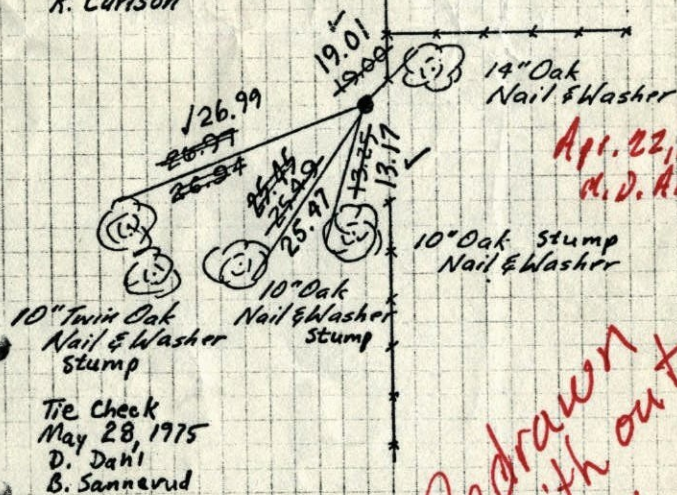 R. Carlson
19.01
19.00
14" Oak
Nail & Washer
26.99
26.97
26.94
25.45
25.49
25.47
13.25
13.17
Apr. 22,
10" Oak Stump
Nail & Washer
10" Oak
Nail & Washer
Stump
10" Twin Oak
Nail & Washer
Stump
Tie Check
May 28, 1975
D. Dahl
B. Sannerud
Redrawn
with out